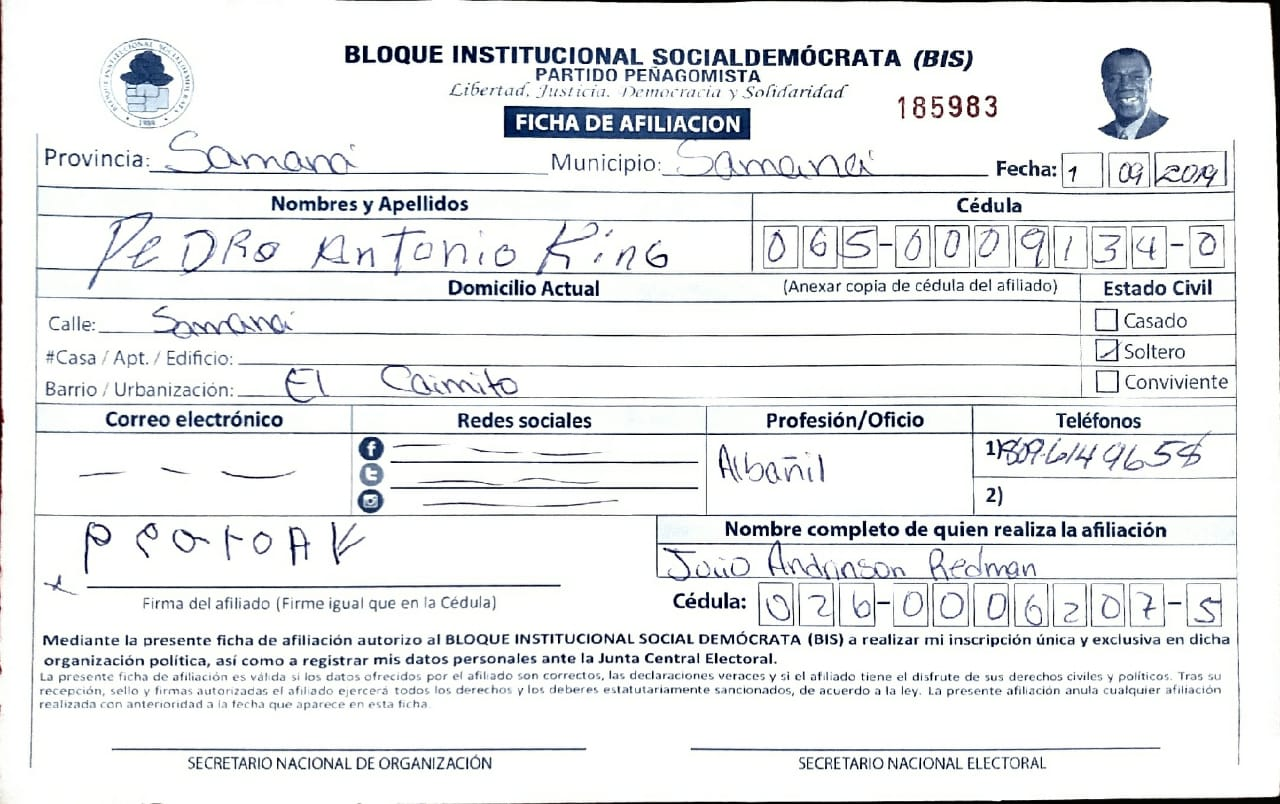 BLOQUE INSTITUCIONAL SOCIALDEMÓCRATA (BIS)
PARTIDO PEÑAGOMISTA
Libertad, Justicia, Democracia y Solidaridad
185983
FICHA DE AFILIACION
Provincia: Samaná Municipio: Samaná Fecha: 1 09 2019
Nombres y Apellidos Cédula
Pedro Antonio King 065-0009134-0
Domicilio Actual (Anexar copia de cédula del afiliado) Estado Civil
Calle: Samaná Casado
#Casa / Apt. / Edificio: Soltero
Barrio / Urbanización: El Caimito Conviviente
Correo electrónico Redes sociales Profesión/Oficio Teléfonos
Albañil 1) 809-6149658
2)
Nombre completo de quien realiza la afiliación
Andrinson Redman
Firma del afiliado (Firme igual que en la Cédula) Cédula: 026-0006207-5
Mediante la presente ficha de afiliación autorizo al BLOQUE INSTITUCIONAL SOCIAL DEMÓCRATA (BIS) a realizar mi inscripción única y exclusiva en dicha
organización política, así como a registrar mis datos personales ante la Junta Central Electoral.
La presente ficha de afiliación es válida si los datos ofrecidos por el afiliado son correctos, las declaraciones veraces y si el afiliado tiene el disfrute de sus derechos civiles y políticos. Tras su
recepción, sello y firmas autorizadas el afiliado ejercerá todos los derechos y los deberes estatutariamente sancionados, de acuerdo a la ley. La presente afiliación anula cualquier afiliación
realizada con anterioridad a la fecha que aparece en esta ficha.
SECRETARIO NACIONAL DE ORGANIZACIÓN SECRETARIO NACIONAL ELECTORAL